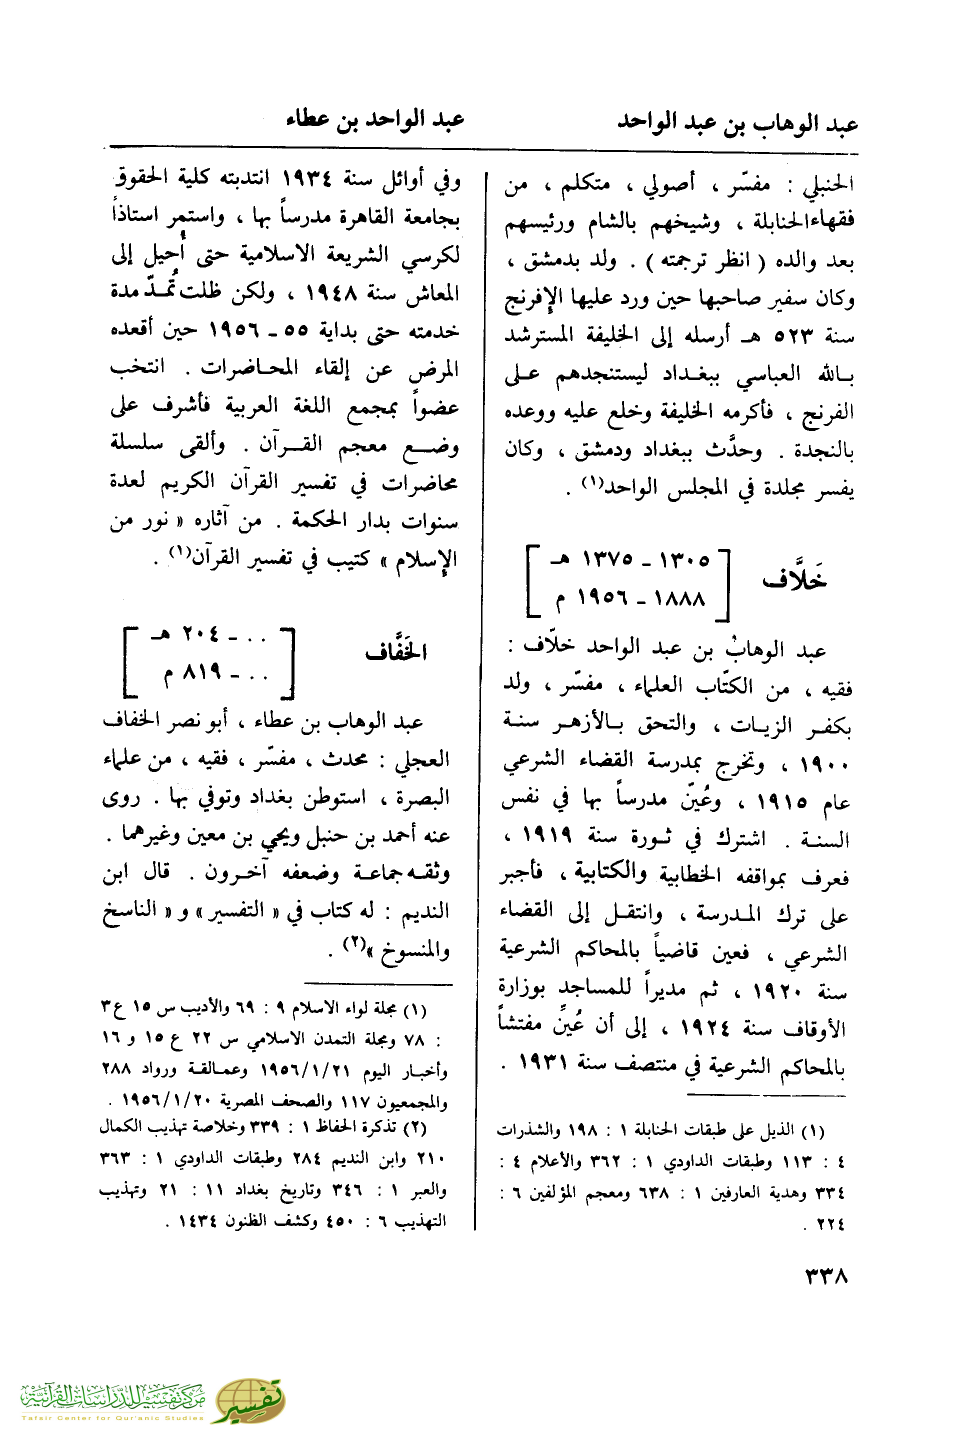 عبد الوهاب بن عبد الواحد
عبد الواحد بن عطاء
الحنبلي : مفسّر ، أصولي ، متكلم ، من
فقهاء الحنابلة ، وشيخهم بالشام ورئيسهم
بعد والده ( انظر ترجمته ) . ولد بدمشق ،
وكان سفير صاحبها حين ورد عليها الإفرنج
سنة ٥٢٣ هـ أرسله إلى الخليفة المسترشد
بالله العباسي ببغداد ليستنجدهم على
الفرنج ، فأكرمه الخليفة وخلع عليه ووعده
بالنجدة . وحدَّث ببغداد ودمشق ، وكان
يفسر مجلدة في المجلس الواحد(١) .
خَلاَّف
١٣٠٥ ـ ١٣٧٥ هـ
١٨٨٨ ـ ١٩٥٦ م
عبد الوهاب بن عبد الواحد خلّاف :
فقيه ، من الكتّاب العلماء ، مفسّر ، ولد
بكفر الزيات ، والتحق بالأزهر سنة
١٩٠٠ ، وتخرج بمدرسة القضاء الشرعي
عام ١٩١٥ ، وعُيّن مدرساً بها في نفس
السنة . اشترك في ثورة سنة ١٩١٩ ،
فعرف بمواقفه الخطابية والكتابية ، فأجبر
على ترك المدرسة ، وانتقل إلى القضاء
الشرعي ، فعين قاضياً بالمحاكم الشرعية
سنة ١٩٢٠ ، ثم مديراً للمساجد بوزارة
الأوقاف سنة ١٩٢٤ ، إلى أن عُيِّن مفتشاً
بالمحاكم الشرعية في منتصف سنة ١٩٣١ .
(١) الذيل على طبقات الحنابلة ١ : ١٩٨ والشذرات
٤ : ١١٣ وطبقات الداودي ١ : ٣٦٢ والأعلام ٤ :
٣٣٤ وهدية العارفين ١ : ٦٣٨ ومعجم المؤلفين ٦ :
٢٢٤ .
وفي أوائل سنة ١٩٣٤ انتدبته كلية الحقوق
بجامعة القاهرة مدرساً بها ، واستمر استاذاً
لكرسي الشريعة الاسلامية حتى أُحيل إلى
المعاش سنة ١٩٤٨ ، ولكن ظلت تُمدّ مدة
خدمته حتى بداية ٥٥ ـ ١٩٥٦ حين أقعده
المرض عن إلقاء المحاضرات . انتخب
عضواً بمجمع اللغة العربية فأشرف على
وضع معجم القرآن . وألقى سلسلة
محاضرات في تفسير القرآن الكريم لعدة
سنوات بدار الحكمة . من آثاره « نور من
الإسلام » كتيب في تفسير القرآن(١) .
الخَفَّاف
. . ـ ٢٠٤ هـ
. . ـ ٨١٩ م
عبد الوهاب بن عطاء ، أبو نصر الخفاف
العجلي : محدث ، مفسّر ، فقيه ، من علماء
البصرة ، استوطن بغداد وتوفي بها . روى
عنه أحمد بن حنبل ويحيي بن معين وغيرهما .
وثقه جماعة وضعفه آخرون . قال ابن
النديم : له كتاب في « التفسير » و « الناسخ
والمنسوخ »(٢) .
(١) مجلة لواء الاسلام ٩ : ٦٩ والأديب س ١٥ ع ٣
: ٧٨ ومجلة التمدن الاسلامي س ٢٢ ع ١٥ و ١٦
وأخبار اليوم ١٩٥٦/١/٢١ وعمالقة ورواد ٢٨٨
والمجمعيون ١١٧ والصحف المصرية ١٩٥٦/١/٢٠ .
(٢) تذكرة الحفاظ ١ : ٣٣٩ وخلاصة تهذيب الكمال
٢١٠ وابن النديم ٢٨٤ وطبقات الداودي ١ : ٣٦٣
والعبر ١ : ٣٤٦ وتاريخ بغداد ١١ : ٢١ وتهذيب
التهذيب ٦ : ٤٥٠ وكشف الظنون ١٤٣٤ .
٣٣٨
مركز تفسير للدراسات القرآنية
Tafsir Center for Qur'anic Studies
تفسير